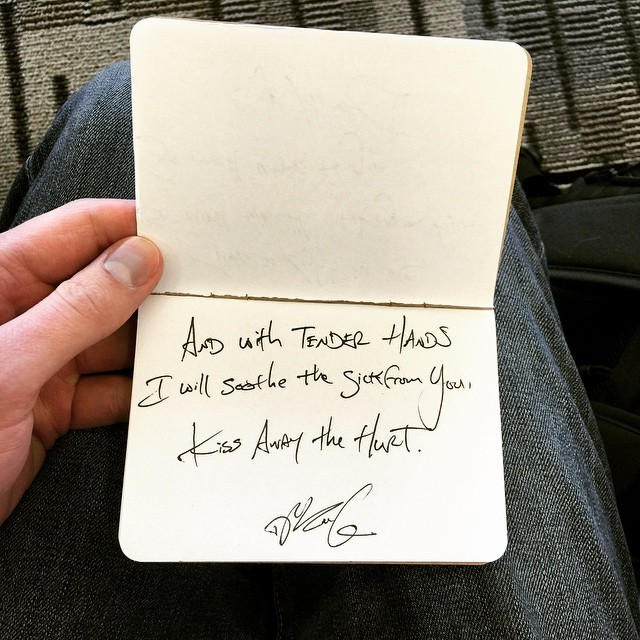 AND with TENDER HANDS
I will soothe the sick from you,
Kiss AWAY the HURT.